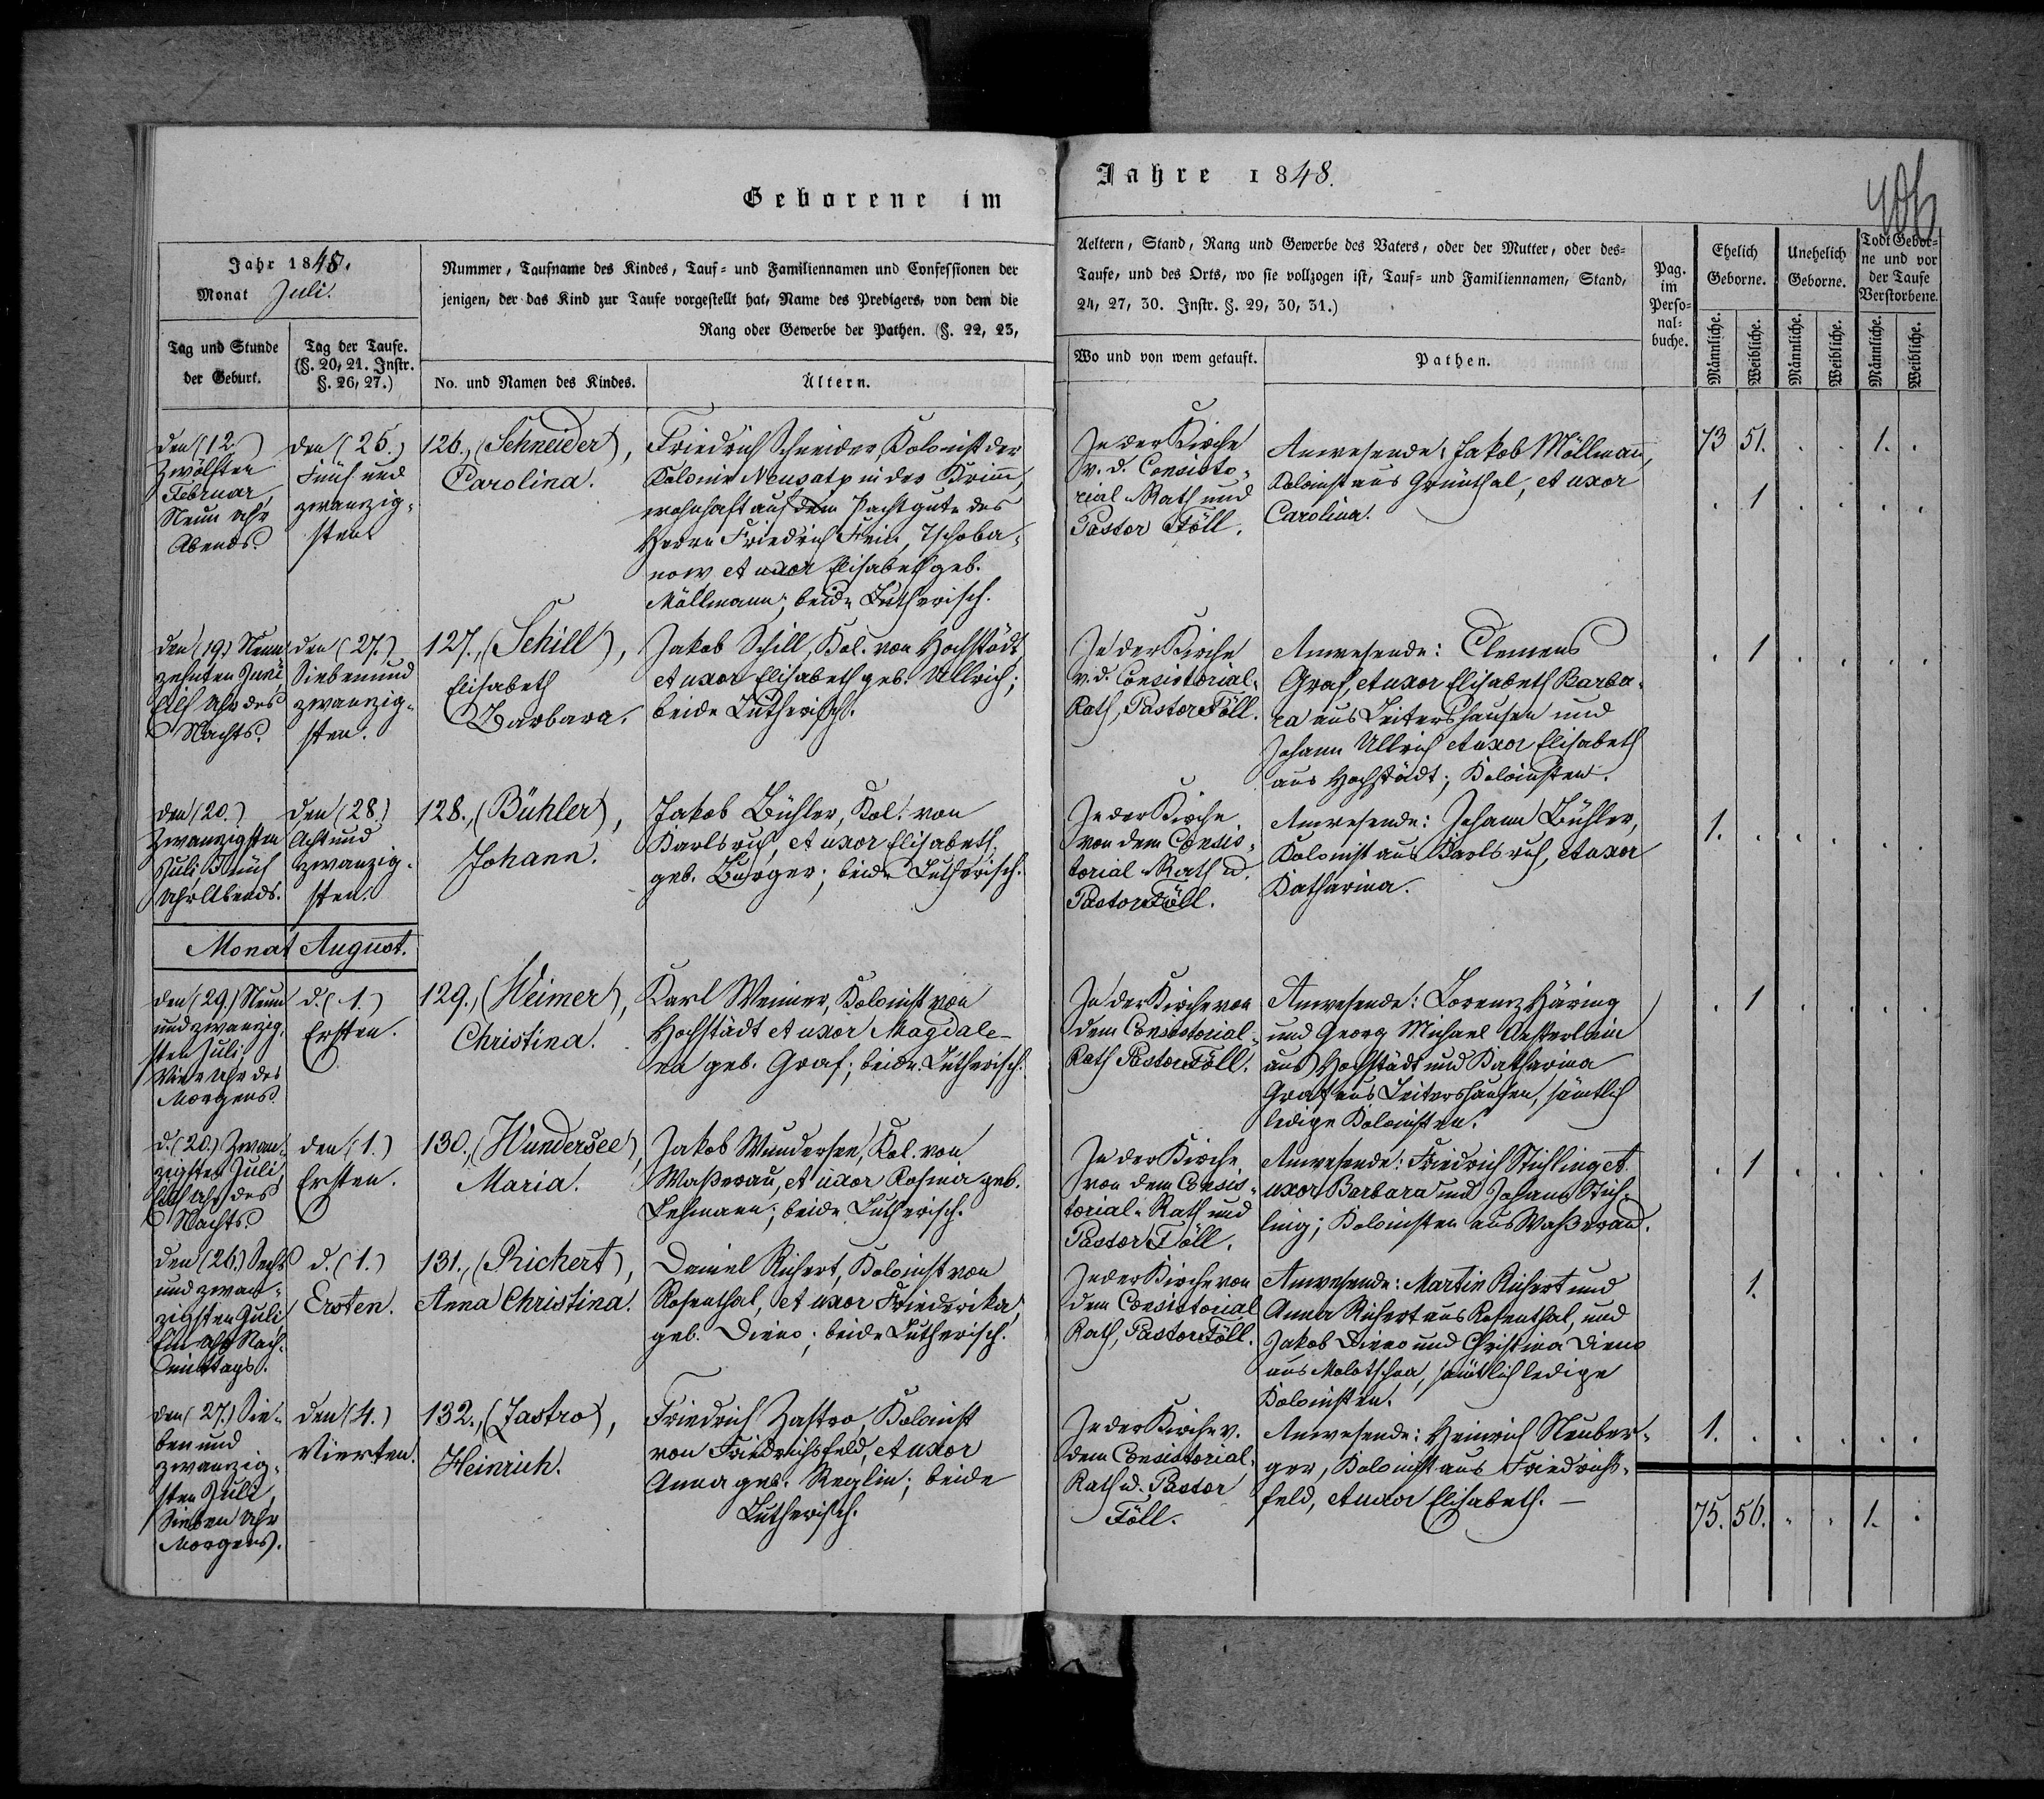 Geborene im
Jahre 1848.
406
Jahr 1848.
Monat Juli.
Tag und Stunde
der Geburt.
Tag der Taufe.
(§. 20, 21. Instr.
§. 26, 27.)
Nummer, Taufname des Kindes, Tauf- und Familiennamen und Confessionen der
jenigen, der das Kind zur Taufe vorgestellt hat, Name des Predigers, von dem die
Rang oder Gewerbe der Pathen. (§. 22, 23,
No. und Namen des Kindes.
Ältern.
Aeltern, Stand, Rang und Gewerbe des Vaters, oder der Mutter, oder des-
Taufe, und des Orts, wo sie vollzogen ist, Tauf- und Familiennamen, Stand,
24, 27, 30. Instr. §. 29, 30, 31.)
Wo und von wem getauft.
Pathen.
Pag.
im
Perso-
nal-
buche.
Ehelich
Geborne.
Unehelich
Geborne.
Todt Gebor-
ne und vor
der Taufe
Verstorbene.
Männliche.
Weibliche.
Männliche.
Weibliche.
Männliche.
Weibliche.
den (12.)
Zwölften
Februar,
Neun Uhr
Abends.
den (25.)
Fünf und
zwanzig-
sten.
126., (Schneider),
Carolina.
Friedrich Schneider, Kolonist der
Kolonie Neusatz in der Krimm,
wohnhaft auf dem Pachtgute des
Herrn Friedrich Fein, Tschoba-
now et uxor Elisabeth geb.
Möllmann; beide Lutherisch.
In der Kirche
v. d. Consisto-
rial-Rath und
Pastor Föll.
Anwesende: Jakob Möllmann,
Kolonist aus Grünthal, et uxor
Carolina.
73 51. . . 1. .
. 1 . . . .
den (19.) Neun
zehnten Juni,
Elf Uhr des
Nachts.
den (27.)
Sieben und
zwanzig-
sten.
127., (Schill),
Elisabeth
Barbara.
Jakob Schill, Kol. von Hochstädt
et uxor Elisabeth geb. Ullrich;
beide Lutherisch.
In der Kirche
v. d. Consistorial-
Rath, Pastor Föll.
Anwesende: Clemens
Graf, et uxor Elisabeth Barba-
ra aus Leitershausen und
Johann Ullrich et uxor Elisabeth
aus Hochstädt; Kolonisten.
. 1 . . . .
den (20.)
Zwanzigsten
Juli Fünf
Uhr Abends.
den (28.)
Acht und
zwanzig-
sten.
128., (Bühler),
Johann.
Jakob Bühler, Kol. von
Karlsruh, et uxor Elisabeth,
geb. Burger; beide Lutherisch.
In der Kirche
von dem Consis-
torial-Rath u.
Pastor Föll.
Anwesende: Johann Bühler,
Kolonist aus Karlsruh, et uxor
Katharina.
1. . . . . .
Monat August.
den (29.) Neun
und zwanzig-
sten Juli
Vier Uhr des
Morgens.
d. (1.)
Ersten.
129., (Weimer),
Christina.
Karl Weimer, Kolonist von
Hochstädt et uxor Magdale-
na geb. Graf; beide Lutherisch.
In der Kirche von
dem Consistorial-
Rath Pastor Föll.
Anwesende: Lorenz Häring
und Georg Michael Oesterlein
aus Hochstädt und Katharina
Graf aus Leitershausen, sämtlich
ledige Kolonisten.
. 1 . . . .
d. (20.) Zwan-
zigsten Juli,
Elf Uhr des
Nachts.
den (1.)
Ersten.
130., (Wundersee),
Maria.
Jakob Wundersee, Kol. von
Waßerau, et uxor Rosina geb.
Lehmann; beide Lutherisch.
In der Kirche
von dem Consis-
torial-Rath und
Pastor Föll.
Anwesende: Friedrich Stichling et
uxor Barbara und Johann Stich-
ling; Kolonisten aus Waßerau.
. 1 . . . .
den (26.) Sechs
und zwan-
zigsten Juli,
Ein Uhr Nach-
mittags.
d. (1.)
Ersten.
131., (Richert),
Anna Christina.
Daniel Richert, Kolonist von
Rosenthal, et uxor Friederika,
geb. Dieno; beide Lutherisch.
In der Kirche von
dem Consistorial
Rath, Pastor Föll.
Anwesende: Martin Richert und
Anna Richert aus Rosenthal, und
Jakob Dieno und Christina Dieno
aus Molotschna, sämtlich ledige
Kolonisten.
1.
den (27.) Sie-
ben und
zwanzig-
sten Juli,
Sieben Uhr
Morgens.
den (4.)
Vierten.
132., (Zastro),
Heinrich.
Friedrich Zastro, Kolonist
von Friedrichsfeld, et uxor
Anna geb. Reglin; beide
Lutherisch.
In der Kirche v.
dem Consistorial-
Rath u. Pastor
Föll.
Anwesende: Heinrich Neuber-
ger, Kolonist aus Friedrichs-
feld, et uxor Elisabeth. —
1. . . . . .
75. 56. . . 1. .